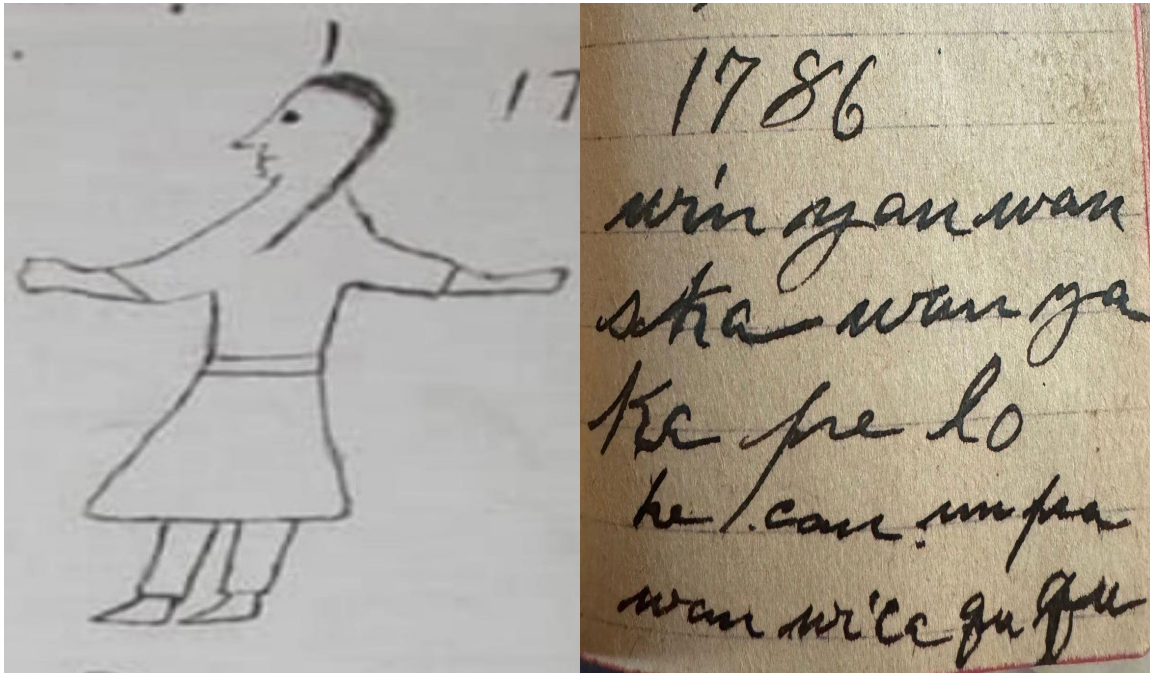 17
1786
win yan wan
ska wan ya
ka pe lo
he / can un pa
wan wica qu qu